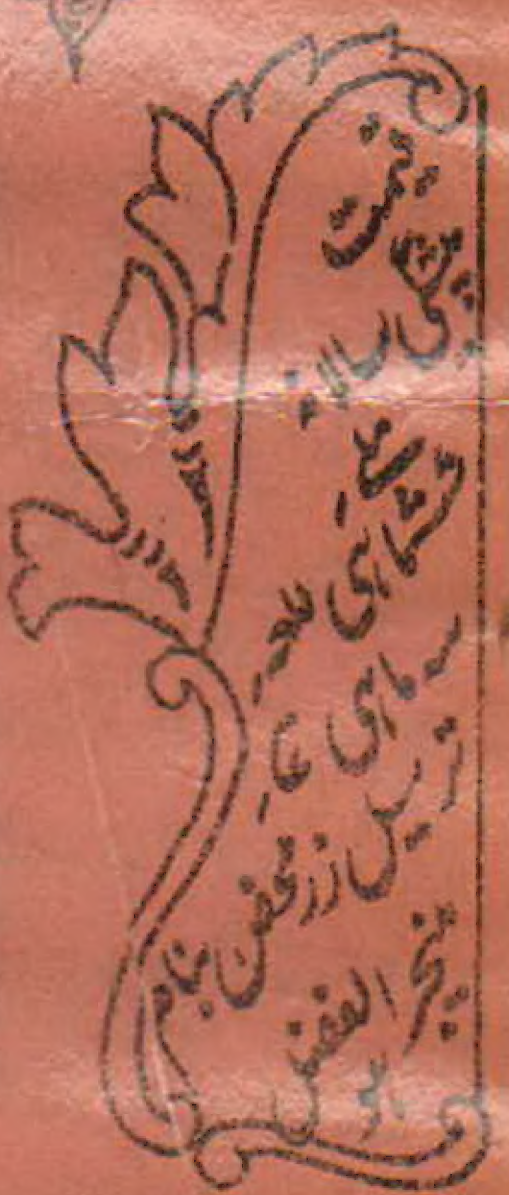 قیمت
پیشگی سالانہ
ششماہی
سہ ماہی
ترسیل زر محض بنام
منیجر الفضل
ہو